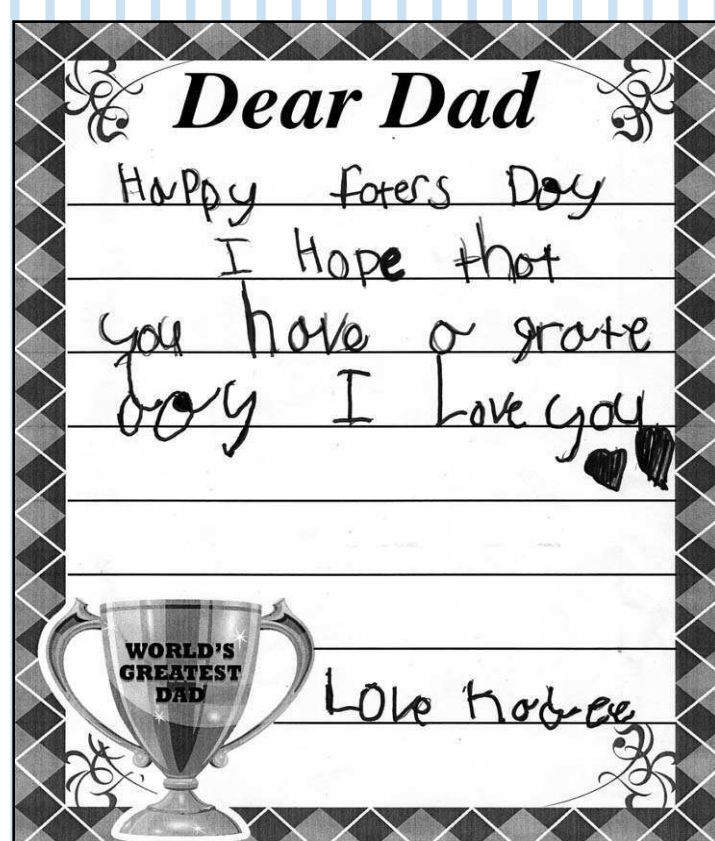 Dear Dad
Happy foters Day
I Hope that
you have a grate
day I Love you
WORLD'S
GREATEST
DAD
Love